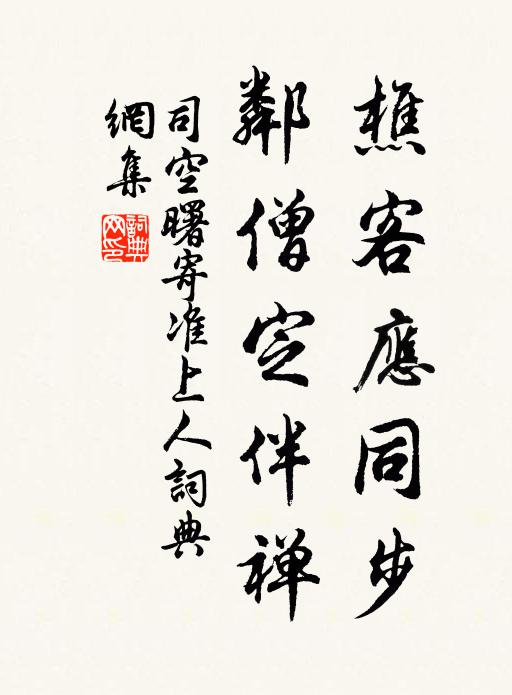 樵客應同步
鄰僧定伴禅
司空曙寄准上人詞典
網集
詞典
网印